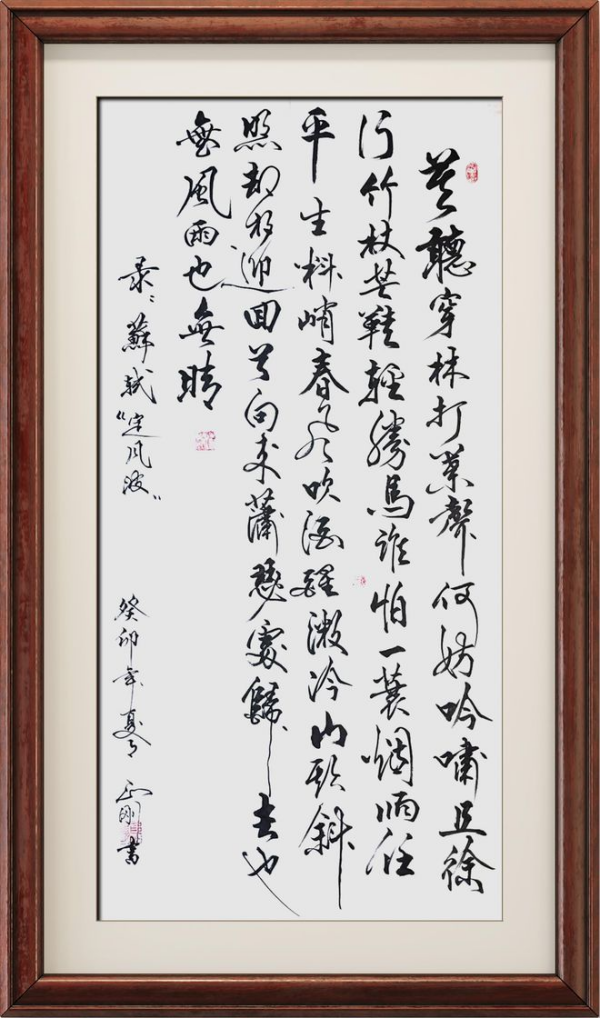 莫聽穿林打葉聲何妨吟嘯且徐
行竹杖芒鞋輕勝馬誰怕一蓑烟雨任
平生料峭春风吹酒醒微冷山頭斜
照却相迎回首向來蕭瑟處歸去也
無風雨也無晴
录:蘇軾“定风波”
癸卯年夏月正刚書